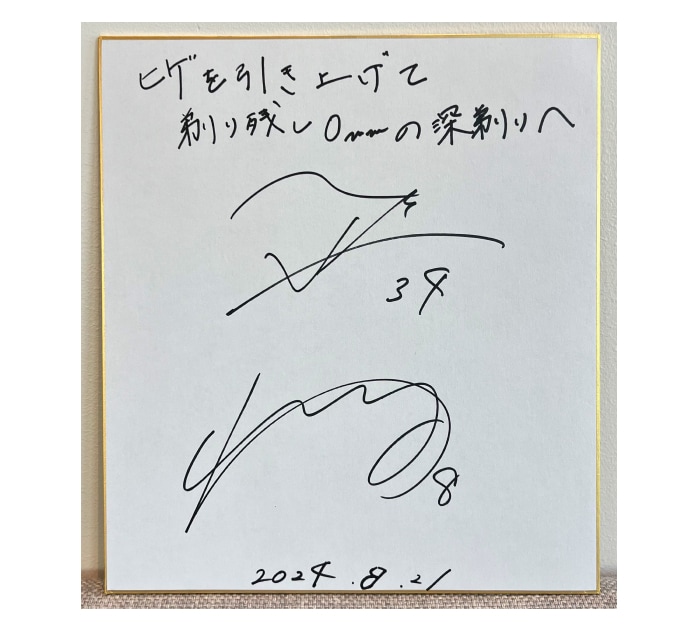 ヒゲを引き上げて
剃り残し0mmの深剃りへ
34
8
2024.8.21